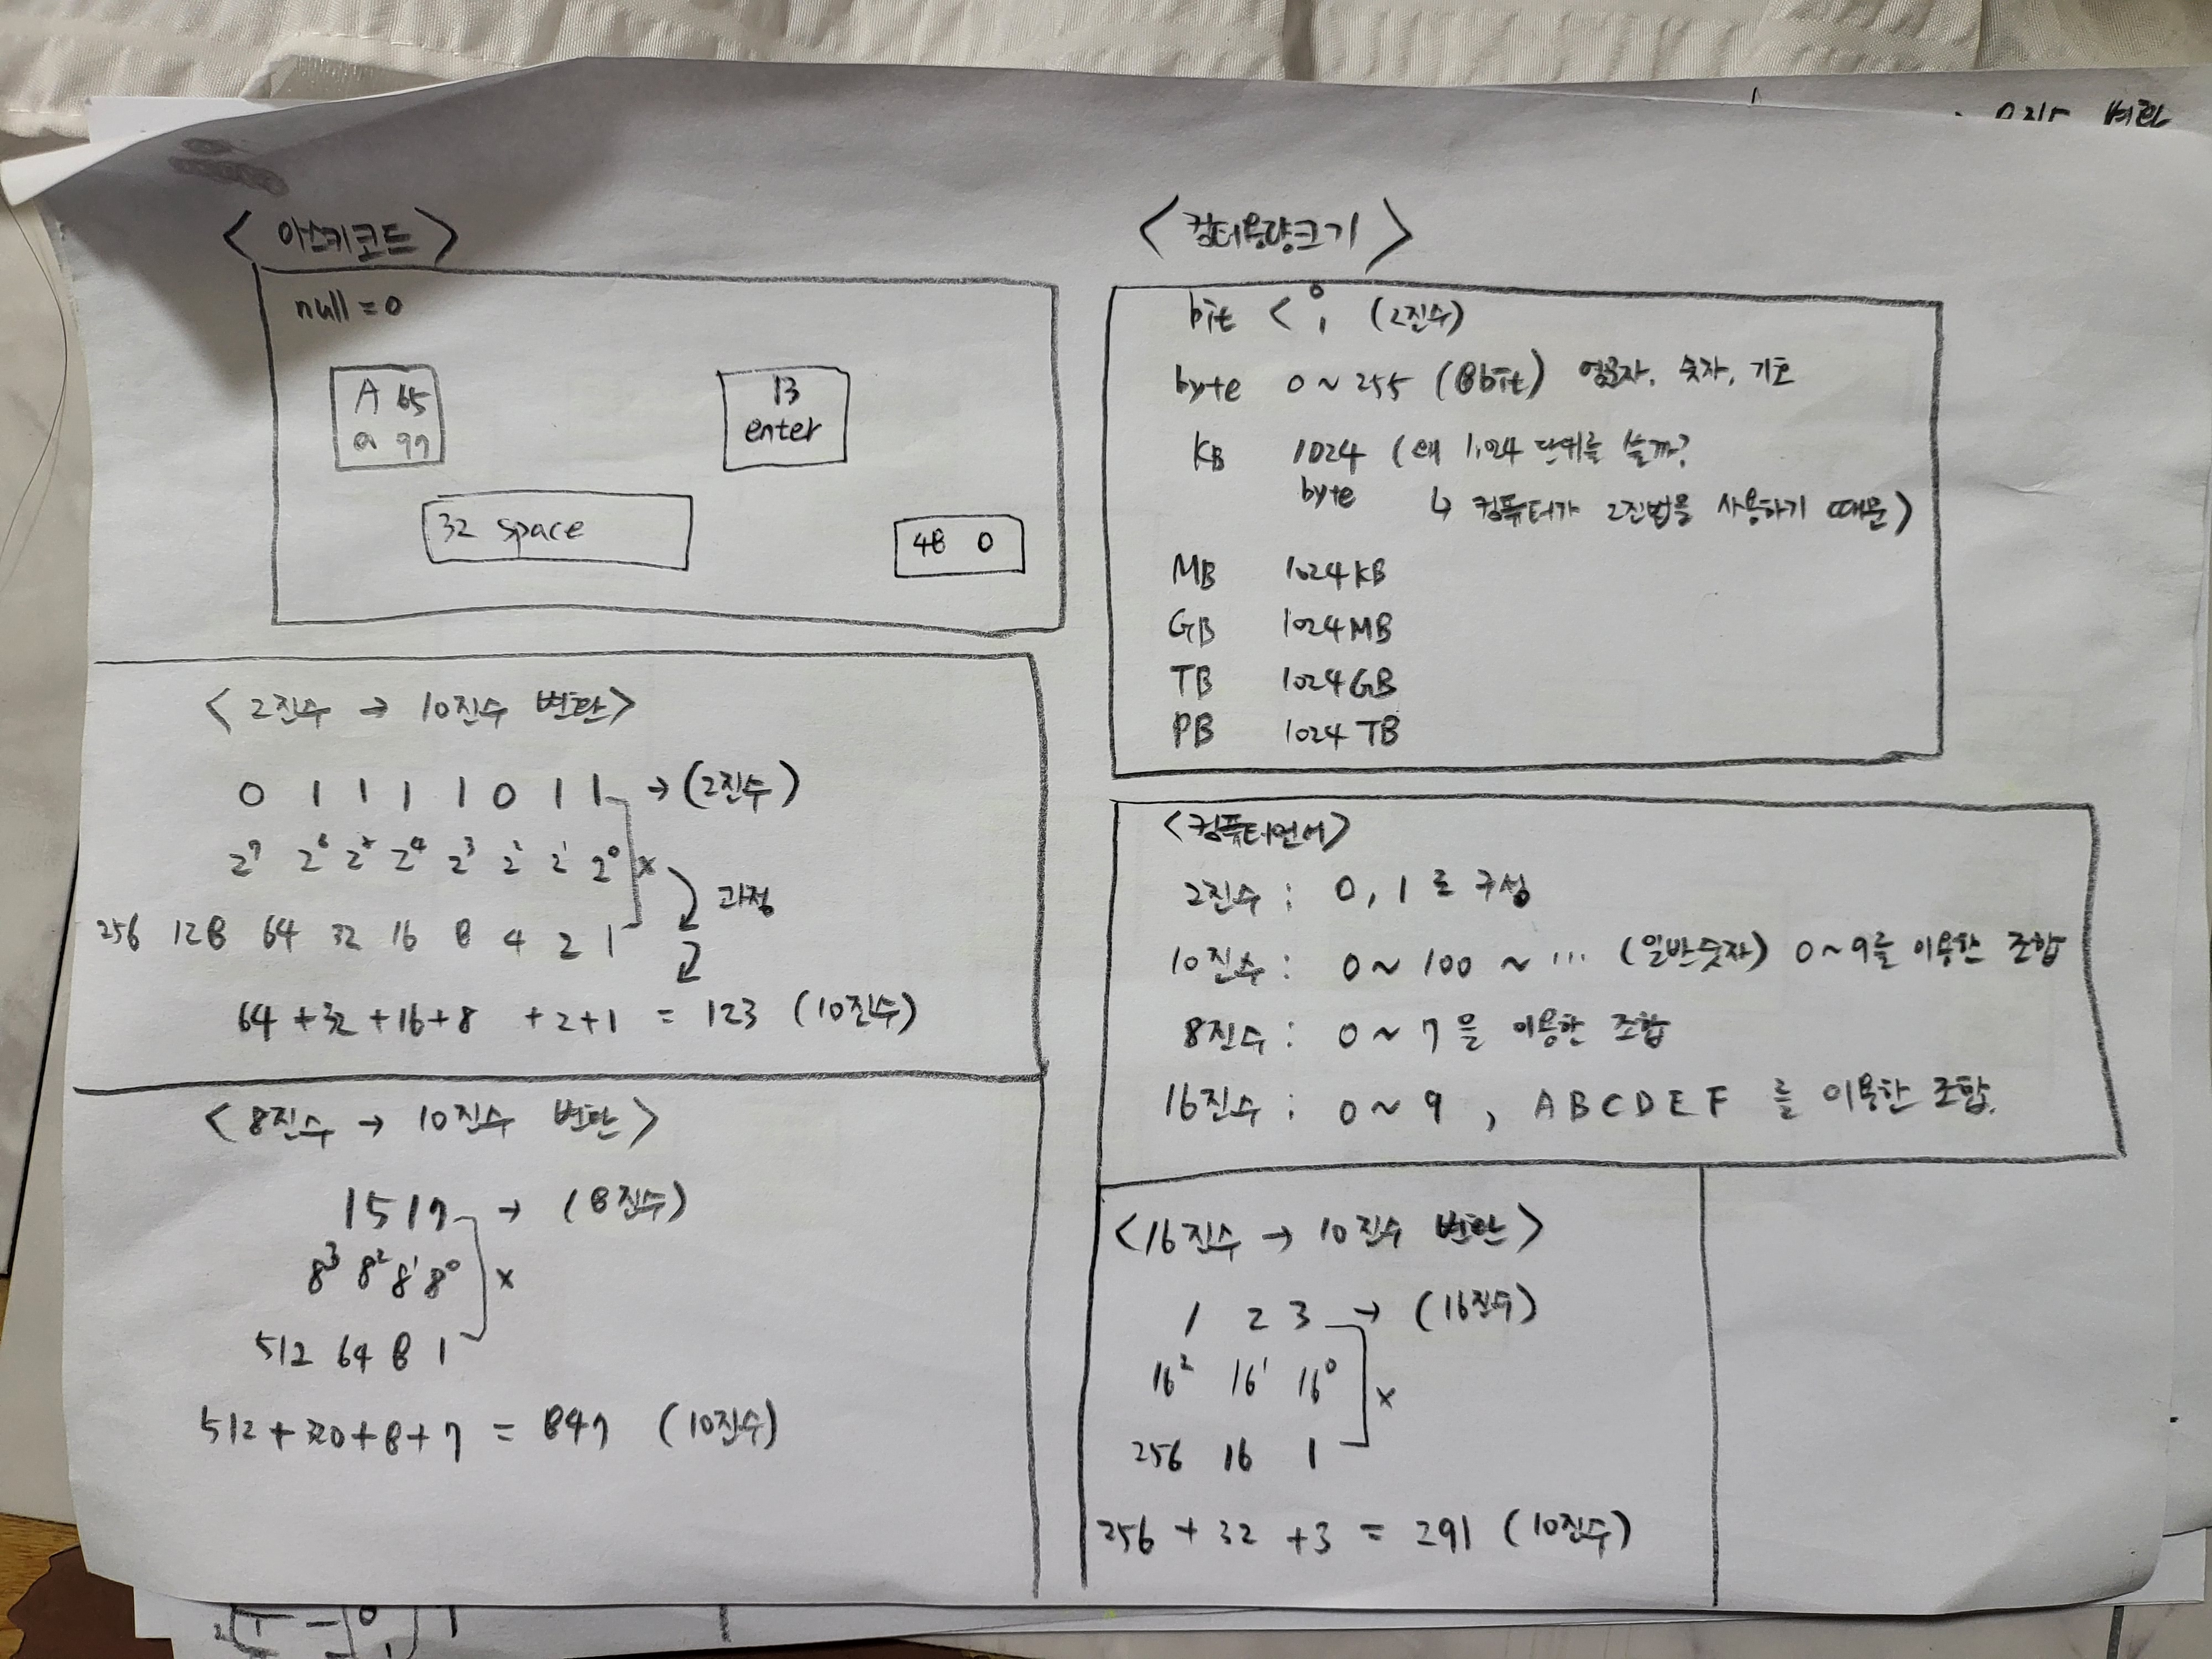 <아스키코드>
null = 0
A 65
a 97
13
enter
32 space
48 0
<컴터용량크기>
bit < 0 1 (2진수)
byte 0 ~ 255 (8bit) 영문자, 숫자, 기호
KB 1024 (왜 1,024 단위를 쓸까?
byte ↳ 컴퓨터가 2진법을 사용하기 때문)
MB 1024KB
GB 1024MB
TB 1024GB
PB 1024TB
<2진수 → 10진수 변환>
0 1 1 1 1 0 1 1 → (2진수)
2⁷ 2⁶ 2⁵ 2⁴ 2³ 2² 2¹ 2⁰ x
과정
256 128 64 32 16 8 4 2 1
64 + 32 + 16 + 8 + 2 + 1 = 123 (10진수)
<컴퓨터언어>
2진수 : 0, 1 로 구성
10진수 : 0 ~ 100 ~ ... (일반숫자) 0~9를 이용한 조합
8진수 : 0 ~ 7 을 이용한 조합
16진수 : 0 ~ 9 , A B C D E F 를 이용한 조합.
<8진수 → 10진수 변환>
1517 → (8진수)
8³ 8² 8¹ 8⁰ x
512 64 8 1
512 + 320 + 8 + 7 = 847 (10진수)
<16진수 → 10진수 변환>
1 2 3 → (16진수)
16² 16¹ 16⁰ x
256 16 1
256 + 32 + 3 = 291 (10진수)